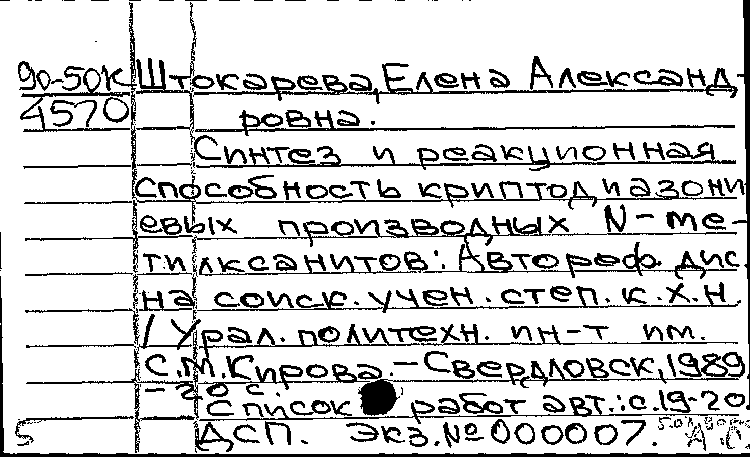 90-50К Штокарева, Елена Александ-
4570 ровна.
Синтез и реакционная
способность криптодиазони
евых производных N-ме-
тилксанитов: Автореф. дис.
на соиск. учен. степ. к.х.н
/ Урал. политехн. ин-т им.
С.М.Кирова.-Свердловск, 1989
-20 с.
Список работ авт.: с.19-20.
5 ДСП. Экз.№000007.